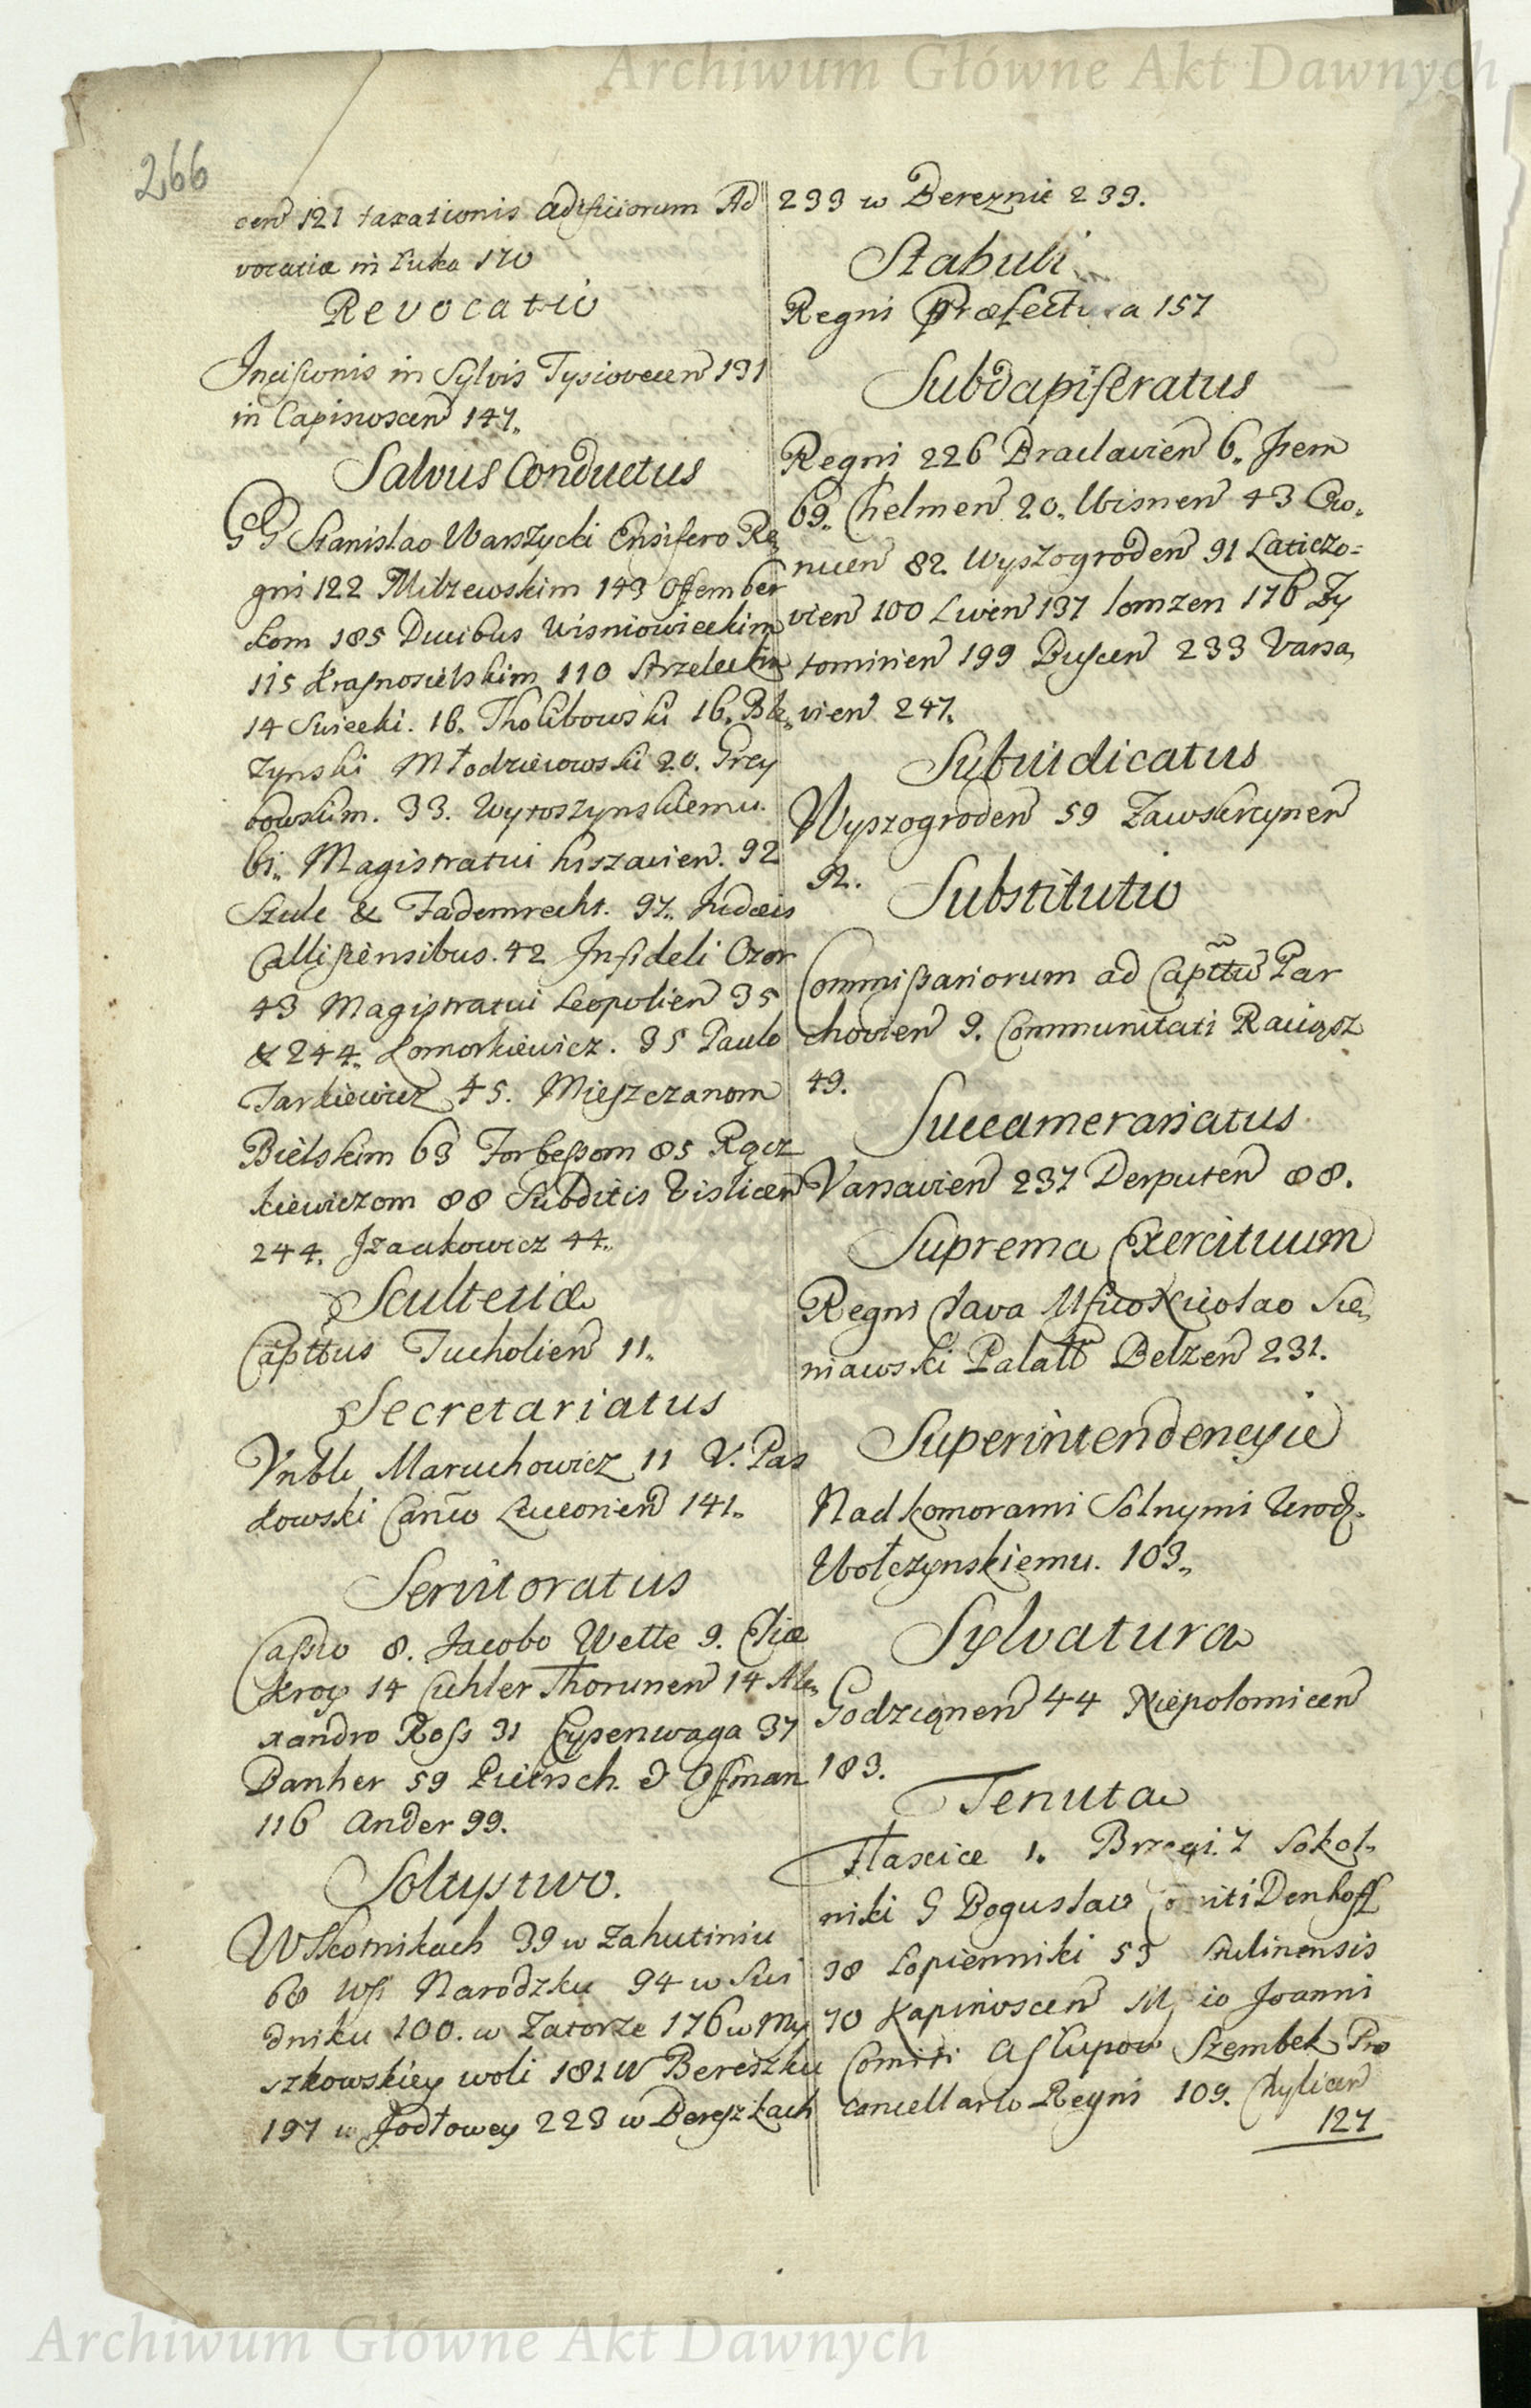 Archiwum Główne Akt Dawnych
266
cen 121 taxationis adificiorum Ad
vocatiæ in Luka 170
Revocatio
Incisionis in Sylvis Tysiovecen 131
in Capinoscen 147.
Salvus Conductus
GG Stanislao Warszycki Ensifero Re
gni 122 Milzewskim 143 Offember
kom 185 Ducibus Wisniowieckim
115 Krasnosielskim 110 Strzeleckim
14 Swiecki. 16. Tholibowski 16. Ble,
zynski Młodzieiowski 20. Grey
bowskim. 33. Wytoszynskiemu.
61. Magistratui Kiszavien. 92
Szule & Fademrecht. 97. Judæis
Callissiensibus. 42 Infideli Ozor
43 Magistratui Leopolien 35
& 244. Lomorkiewicz. 35 Paulo
Tarkiewicz 45. Mieszczanom
Bielskim 63 Forbessom 85 Rącz
kiewiczom 88 Subditis Vislicen
244. Izaakowicz 44.
Scultetiæ
Capittus Tucholien 11.
Secretariatus
Vnbli Maruchowicz 11 V. Pas
kowski Canco Luceorien 141.
Servitoratus
Cassio 8. Jacobo Wette 9. Eliæ
Kroy 14 Cuhler Thorunen 14 Ale,
xandro Ross 31 Eysenwaga 37
Danher 59 Pietrsch. & Offman
116 Ander 99.
Soltystwo.
W Skotnikach 39 w Zahutiniu
68 Wsi Narodzku 94 w Swi
dniku 100. w Zatorze 176 w My
szkowskiey woli 181 W Berezku
197 w Jodłowey 223 w Bereszkach
233 w Bereznie 239.
Stabuli
Regni Præfectura 157
Subdapiferatus
Regni 226 Braclavien 6. Item
69. Chelmen 20. Visnen 43 Cio,
nuen 82. Wyszogroden 91 Laticzo=
vien 100 Livien 137 Lomzen 176 Zy
tomirien 199 Buscen 233 Varsa,
vien 247.
Subiudicatus
Wyszogroden 59 Zawskrzynen
92.
Substitutio
Commissariorum ad Capttu Par
chovien 9. Communitati Raiigsz
49.
Succamerariatus
Varsavien 237 Derputen 88.
Suprema Exercituum
Regni Clava Mfico Nicolao Sie,
niawski Palatt Belzen 231.
Superintendencyie
Nad komorami Solnymi Urodz.
Wołczynskiemu. 103.
Sylvatura
Godzięnen 44 Niepolomicen
183.
Tenuta
Flaxice 1. Brzegi. 7 Sokol,
niki G Boguslao Comiti Denhoff
38 Lopienniki 53 Stulinensis
70 Kapinoscen M io Joanni
Comiti a Slupow Szembek Pro
cancellario Regni 109. Chylicen
127
Archiwum Główne Akt Dawnych